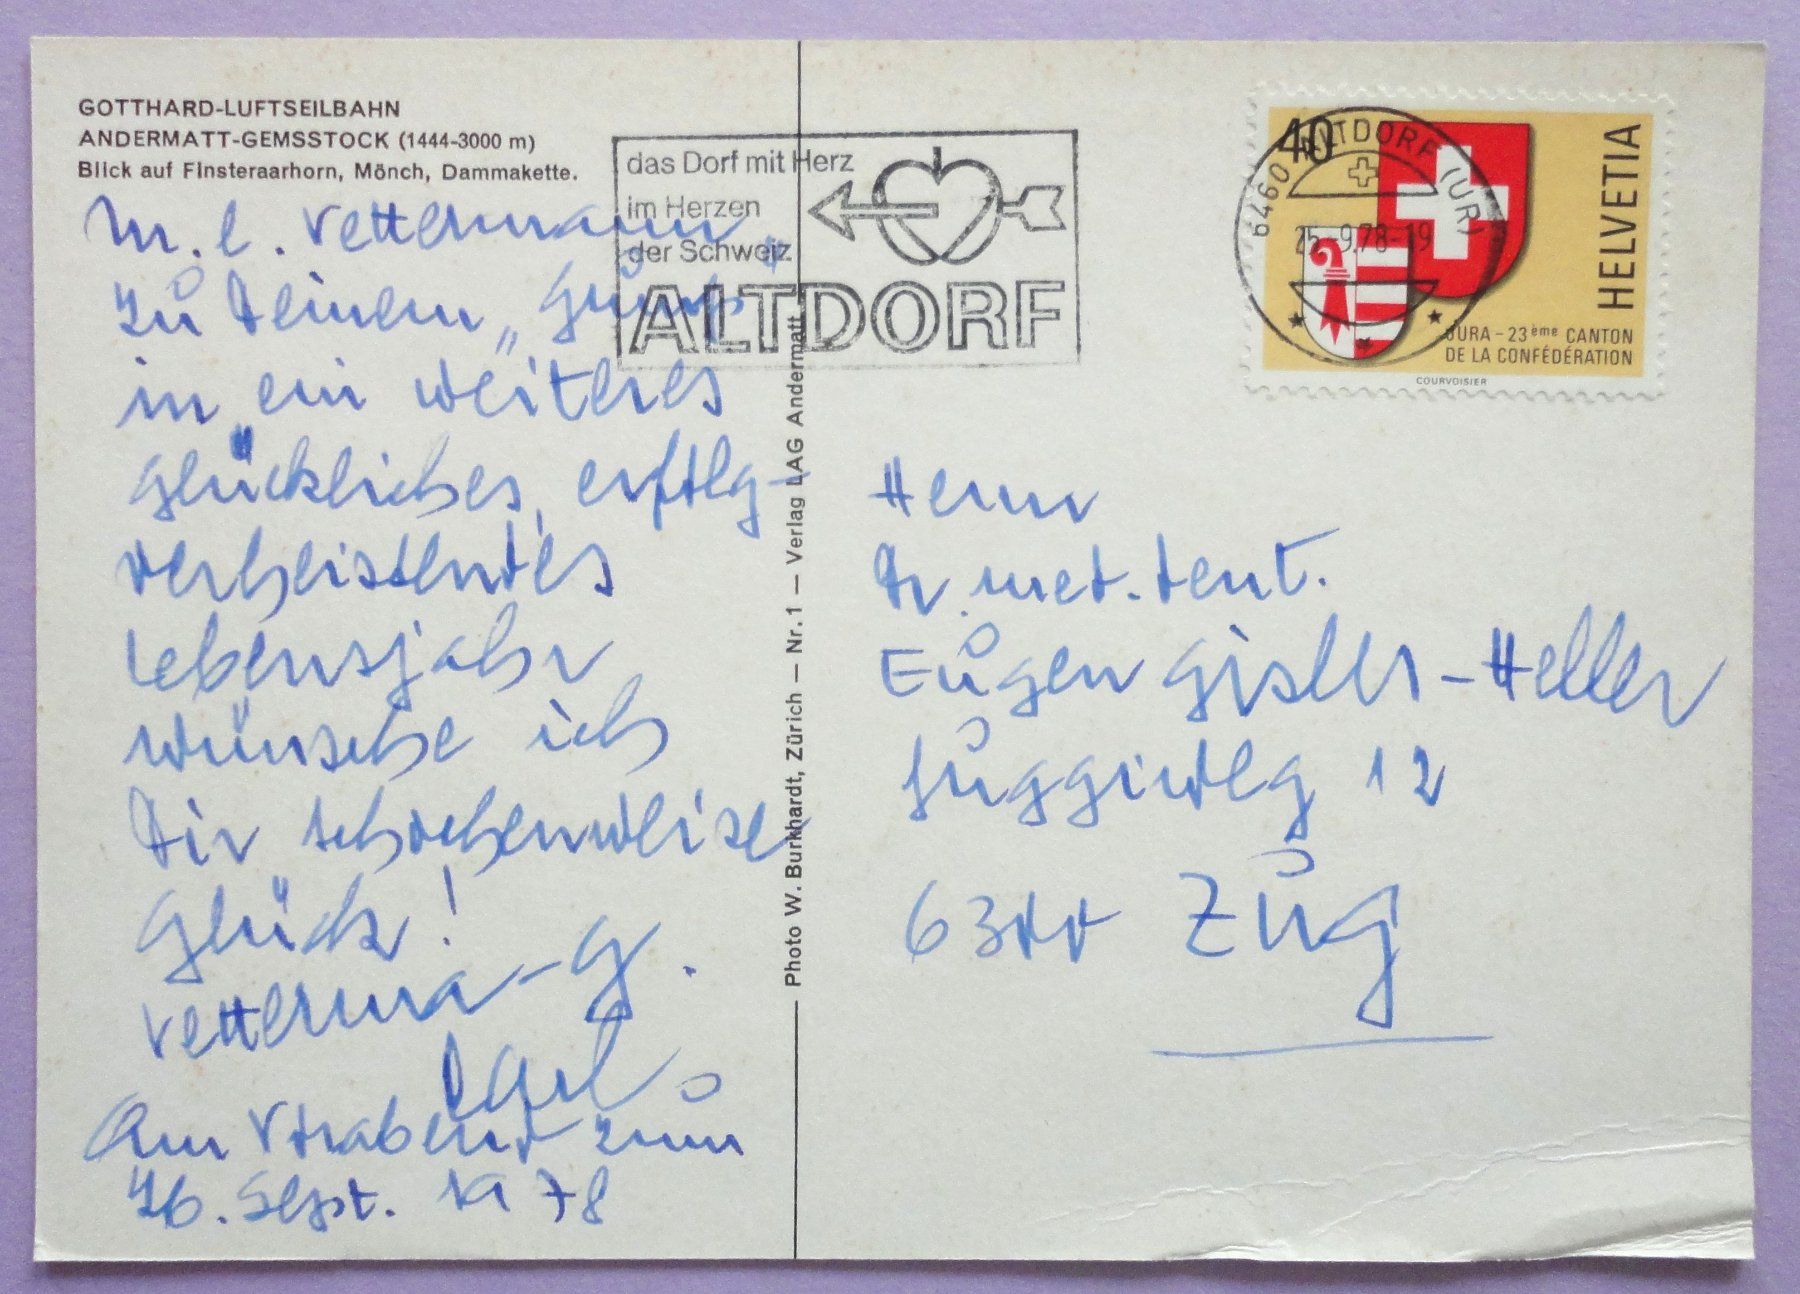 GOTTHARD-LUFTSEILBAHN
ANDERMATT-GEMSSTOCK (1444-3000 m)
Blick auf Finsteraarhorn, Mönch, Dammakette.
M. l. Vettermann
Zu Deinem „
in ein weiteres
glückliches, erfolg-
verheissendes
Lebensjahr
wünsche ich
Dir schochenweise
Glück!
Vetterma-G.
Am Vorabend zum
26. Sept. 1978
das Dorf mit Herz
im Herzen
der Schweiz
ALTDORF
6460 ALTDORF (UR)
25.-9.78-19
40
HELVETIA
JURA - 23ème CANTON
DE LA CONFÉDÉRATION
COURVOISIER
Photo W. Burkhardt, Zürich — Nr. 1 — Verlag LAG Andermatt
Herrn
Dr. med. dent.
Eugen Gisler-Heller
Fuggiweg 12
6300 Zug